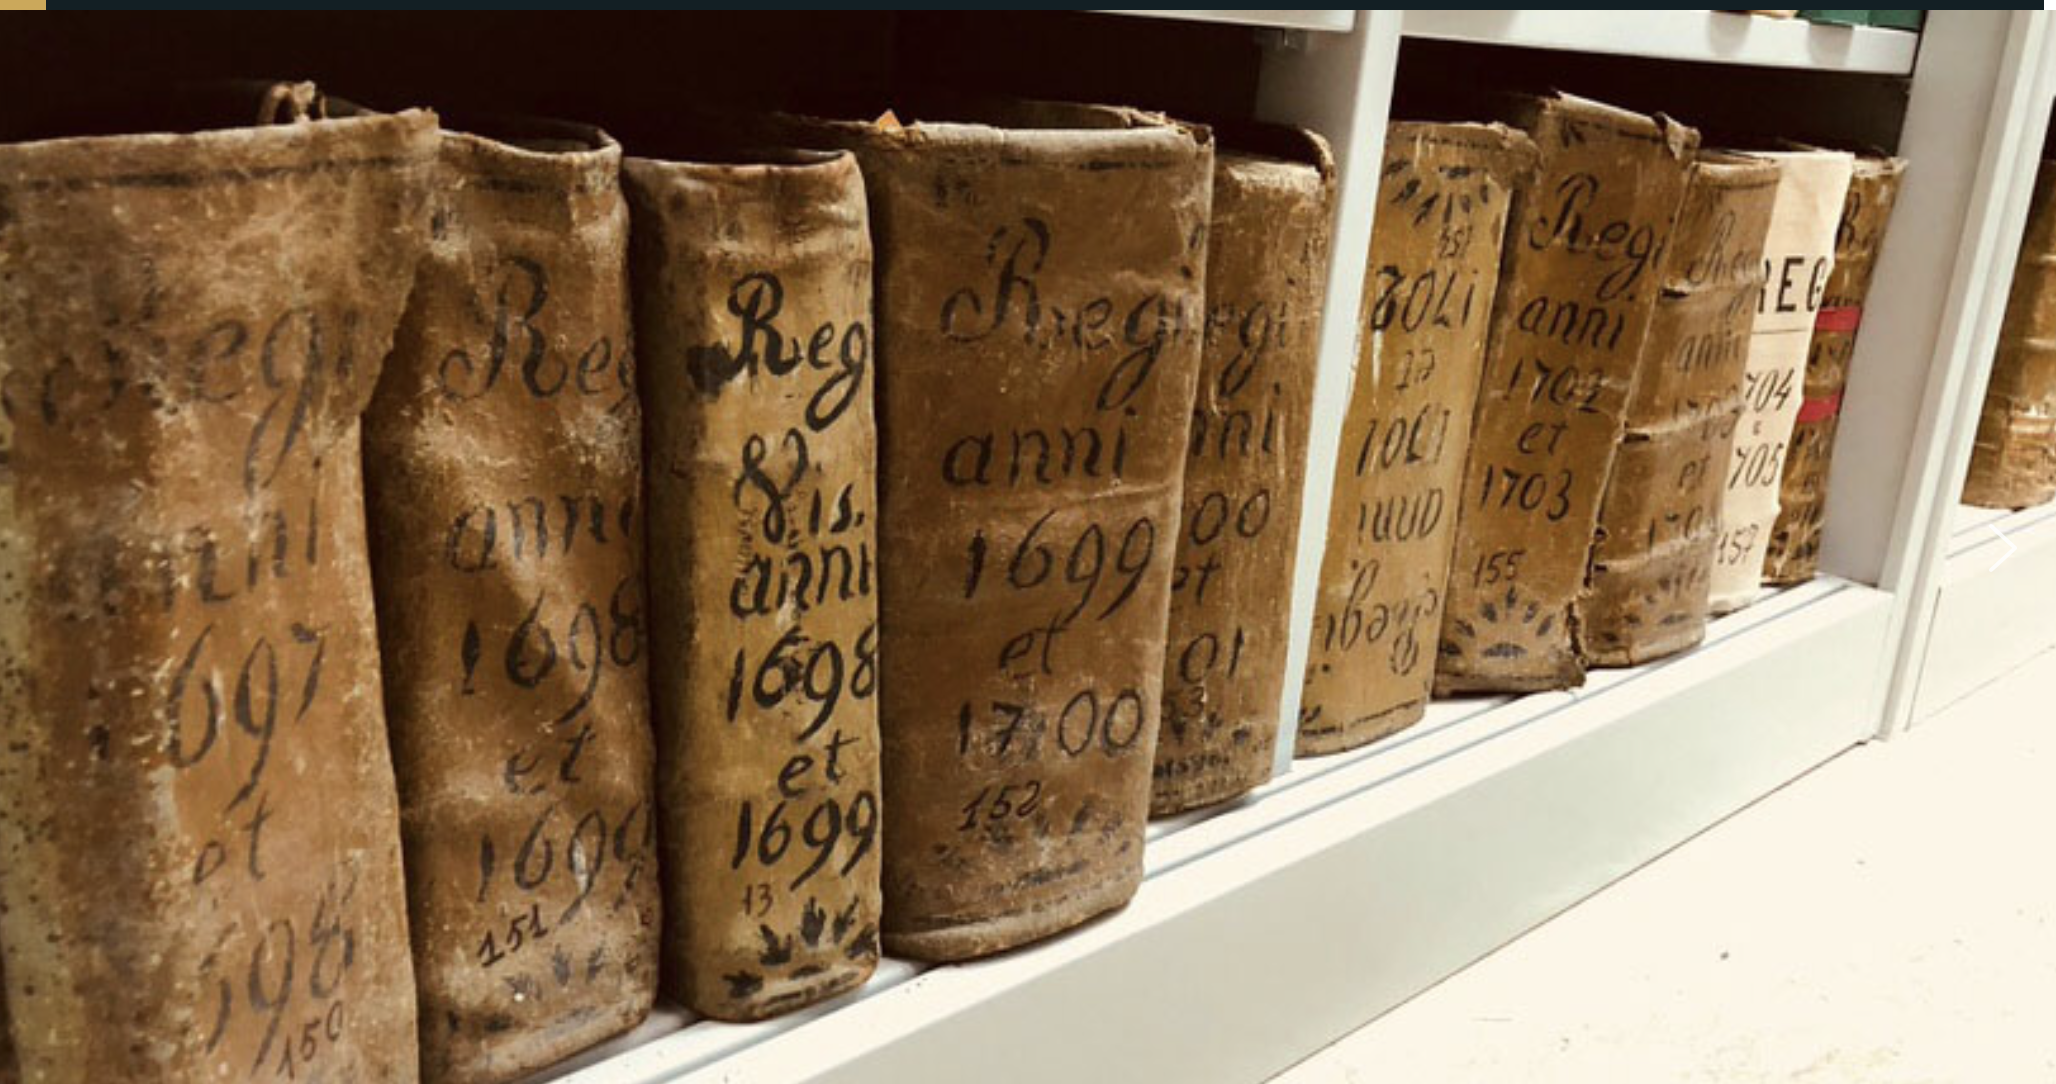 Regi
anni
697
et
698
150
Reg
anni
1698
et
1699
151
Reg
is.
anni
1698
et
1699
13
Regi
anni
1699
et
1700
152
egi
nni
00
et
01
Regi
anni
1701
et
1702
Regi
anni
1702
et
1703
155
Reg
anni
1703
et
170
REG
704
e
705
157